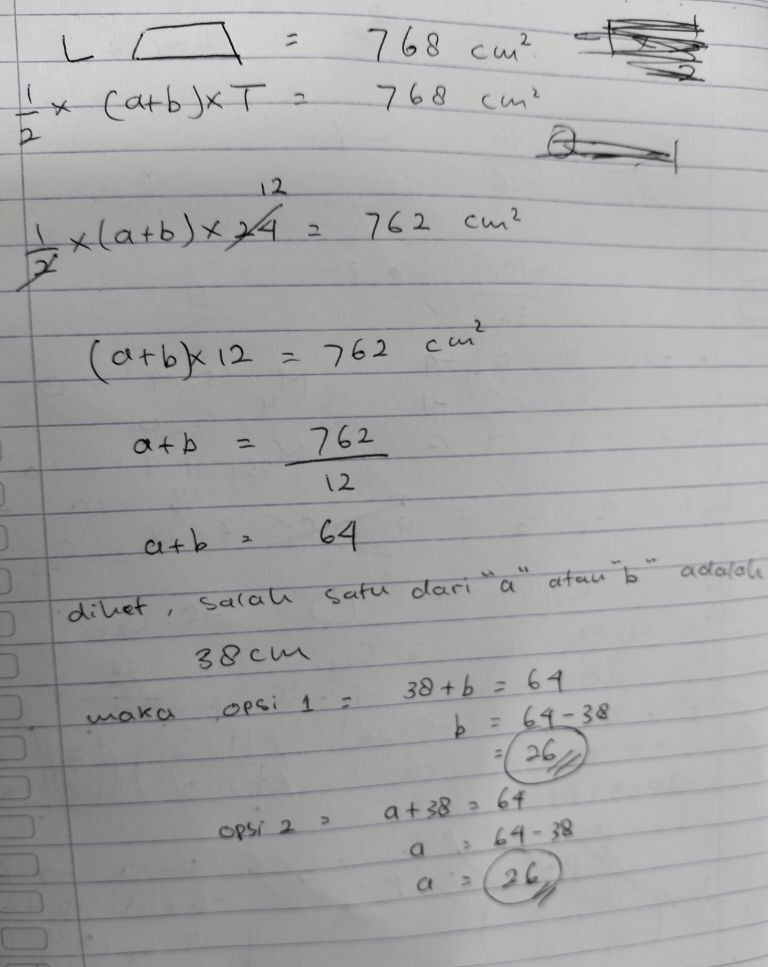 L = 768 cm²
1/2 × (a+b) × T = 768 cm²
12
1/2 × (a+b) × 24 = 762 cm²
(a+b) × 12 = 762 cm²
a+b = 762/12
a+b = 64
diket, salah satu dari "a" atau "b" adalah
38 cm
maka opsi 1 = 38 + b = 64
b = 64 - 38
= 26
opsi 2 = a + 38 = 64
a = 64 - 38
a = 26